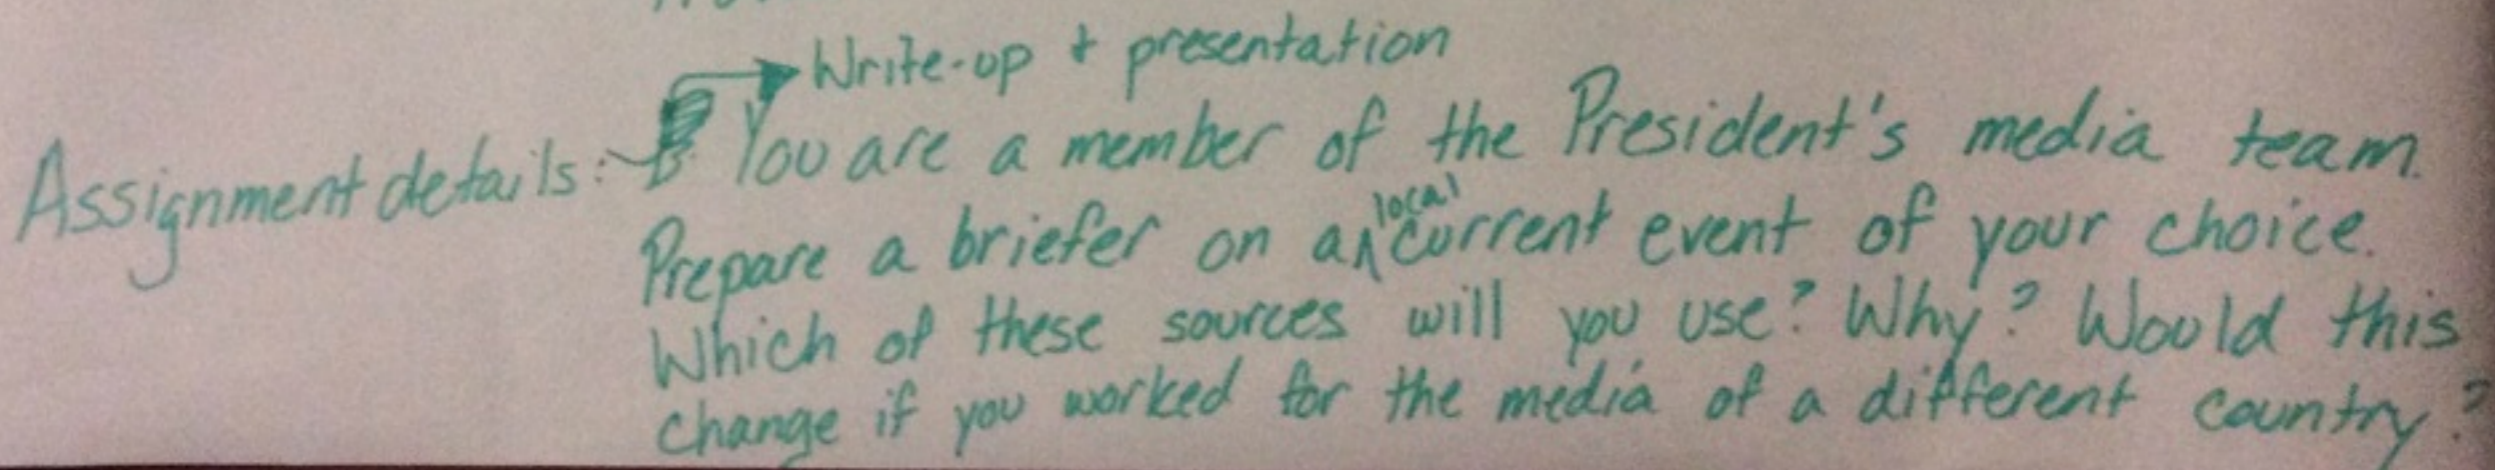 Write-up + presentation
Assignment details: You are a member of the President's media team.
Prepare a briefer on a local current event of your choice.
Which of these sources will you use? Why? Would this
change if you worked for the media of a different country?